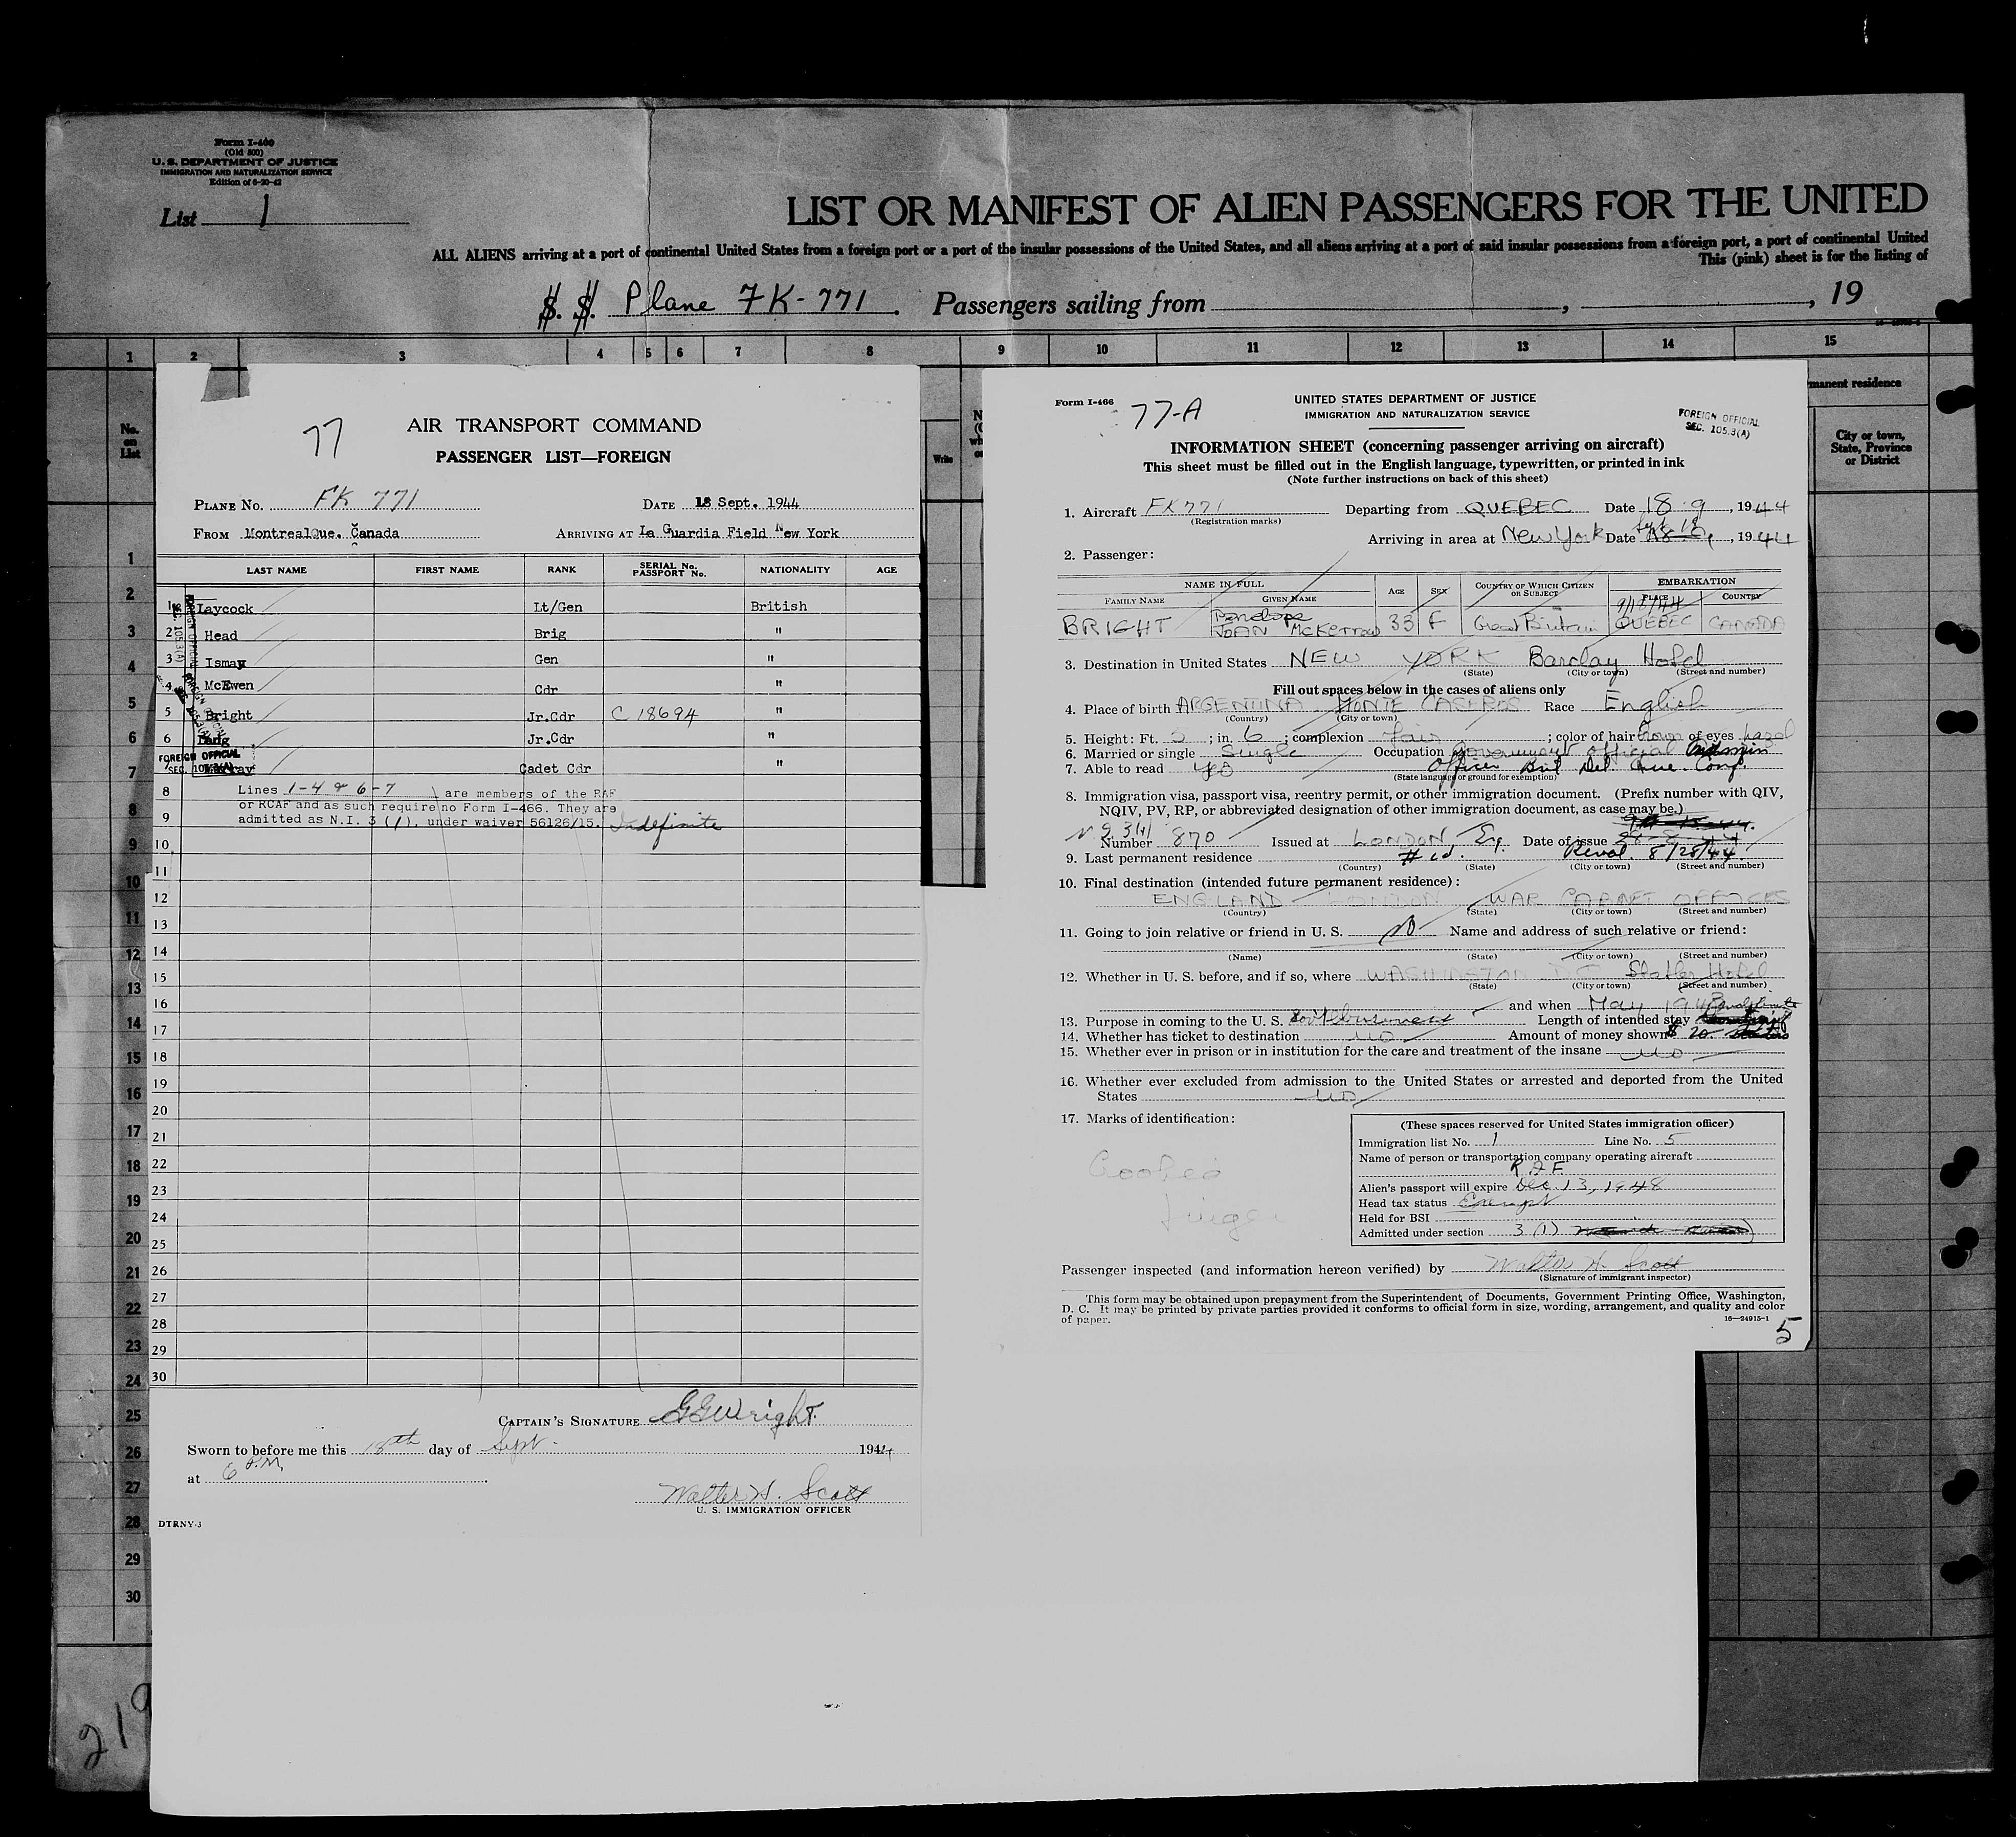 Form I-400
(Old 500)
U. S. DEPARTMENT OF JUSTICE
IMMIGRATION AND NATURALIZATION SERVICE
Edition of 6-20-42
List 1
LIST OR MANIFEST OF ALIEN PASSENGERS FOR THE UNITED
ALL ALIENS arriving at a port of continental United States from a foreign port or a port of the insular possessions of the United States, and all aliens arriving at a port of said insular possessions from a foreign port, a port of continental United
This (pink) sheet is for the listing of
S. S. Plane FK-771. Passengers sailing from , , 19
1 2 3 4 5 6 7 8 9 10 11 12 13 14 15
No. on List
Write
manent residence
City or town, State, Province or District
77
AIR TRANSPORT COMMAND
PASSENGER LIST—FOREIGN
PLANE No. FK 771 DATE 18 Sept. 1944
FROM Montreal Que. Canada ARRIVING AT La Guardia Field New York
LAST NAME FIRST NAME RANK SERIAL No. PASSPORT No. NATIONALITY AGE
1 Laycock Lt/Gen British
2 Head Brig "
3 Ismay Gen "
4 McEwen Cdr "
5 Bright Jr.Cdr C 18694 "
6 Jr.Cdr "
7 Cadet Cdr "
FOREIGN OFFICIAL
SEC. 105.3(A)
8 Lines 1-4 & 6-7 are members of the RAF
or RCAF and as such require no Form I-466. They are
9 admitted as N.I. 3 (1), under waiver 56126/15. Indefinite
10
11
12
13
14
15
16
17
18
19
20
21
22
23
24
25
26
27
28
29
30
CAPTAIN'S SIGNATURE GGWright.
Sworn to before me this 18th day of Sept. 1944
at 6 P.M.
Walter H. Scott
U. S. IMMIGRATION OFFICER
DTRNY-3
Form I-466
77-A
UNITED STATES DEPARTMENT OF JUSTICE
IMMIGRATION AND NATURALIZATION SERVICE
FOREIGN OFFICIAL
SEC. 105.3(A)
INFORMATION SHEET (concerning passenger arriving on aircraft)
This sheet must be filled out in the English language, typewritten, or printed in ink
(Note further instructions on back of this sheet)
1. Aircraft FK771 Departing from QUEBEC Date 18.9, 1944
(Registration marks)
Arriving in area at New York Date Sept 18, 1944
2. Passenger:
NAME IN FULL AGE SEX COUNTRY OF WHICH CITIZEN OR SUBJECT EMBARKATION
FAMILY NAME GIVEN NAME PLACE COUNTRY
9/18/44
BRIGHT Penelope JOAN McKerrow 33 F Great Britain QUEBEC CANADA
3. Destination in United States NEW YORK Barclay Hotel
(State) (City or town) (Street and number)
Fill out spaces below in the cases of aliens only
4. Place of birth ARGENTINA MONTE CASEROS Race English
(Country) (City or town)
5. Height: Ft. 5; in. 6; complexion fair; color of hair brown of eyes hazel
6. Married or single Single Occupation Government official Admin
7. Able to read yes Officer Brit Del Que. Conf.
(State language or ground for exemption)
8. Immigration visa, passport visa, reentry permit, or other immigration document. (Prefix number with QIV,
NQIV, PV, RP, or abbreviated designation of other immigration document, as case may be.)
Number 870 Issued at LONDON, Eng. Date of issue
9. Last permanent residence # 10. Reval. 8/28/44
(Country) (State) (City or town) (Street and number)
10. Final destination (intended future permanent residence):
ENGLAND LONDON WAR CABINET OFFICES
(Country) (State) (City or town) (Street and number)
11. Going to join relative or friend in U. S. no Name and address of such relative or friend:
(Name) (State) (City or town) (Street and number)
12. Whether in U. S. before, and if so, where WASHINGTON DC Statler Hotel
(State) (City or town) (Street and number)
and when May 1943
13. Purpose in coming to the U. S. Govt business Length of intended stay
14. Whether has ticket to destination no Amount of money shown $ 20.
15. Whether ever in prison or in institution for the care and treatment of the insane no
16. Whether ever excluded from admission to the United States or arrested and deported from the United
States no
17. Marks of identification:
Crooked
finger
(These spaces reserved for United States immigration officer)
Immigration list No. 1 Line No. 5
Name of person or transportation company operating aircraft
R A F
Alien's passport will expire Dec. 13, 1948
Head tax status Exempt
Held for BSI
Admitted under section 3 (1)
Passenger inspected (and information hereon verified) by Walter H. Scott
(Signature of immigrant inspector)
This form may be obtained upon prepayment from the Superintendent of Documents, Government Printing Office, Washington,
D. C. It may be printed by private parties provided it conforms to official form in size, wording, arrangement, and quality and color
of paper.
16—24915-1
5
1
2
3
4
5
6
7
8
9
10
11
12
13
14
15
16
17
18
19
20
21
22
23
24
25
26
27
28
29
30
219